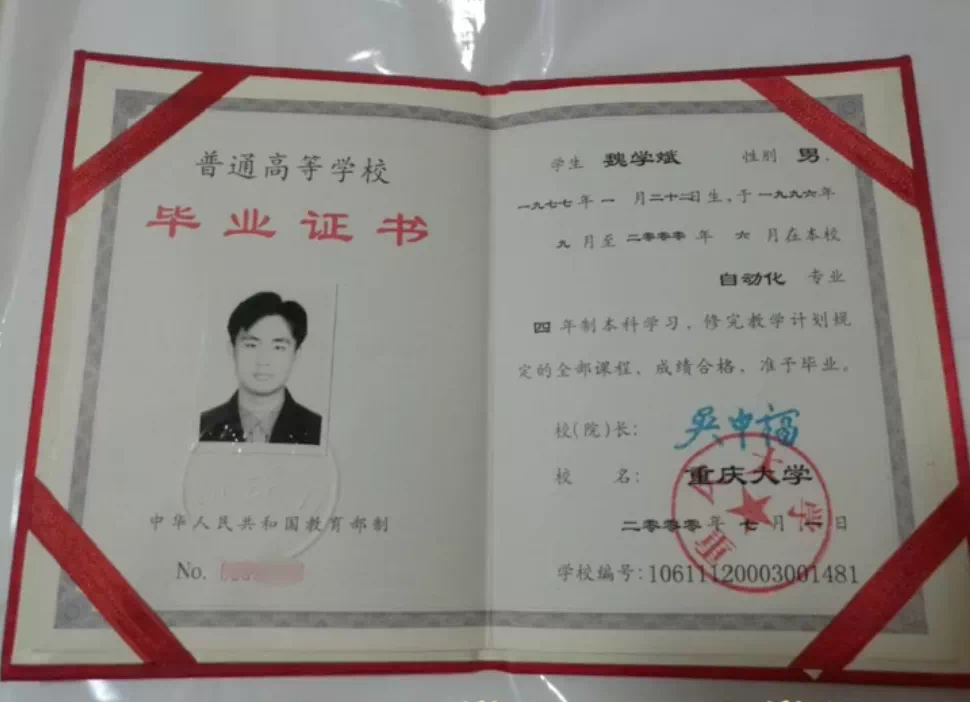 普通高等学校
毕业证书
中华人民共和国教育部制
No.
学生 魏学斌 性别 男,
一九七七年 一 月二十二日生,于一九九六年
九 月至 二零零零 年 六 月在本校
自动化 专业
四 年制本科学习,修完教学计划规
定的全部课程,成绩合格,准予毕业。
校(院)长: 吴中福
校 名: 重庆大学
二零零零年 七 月 一 日
学校编号:10611120003001481